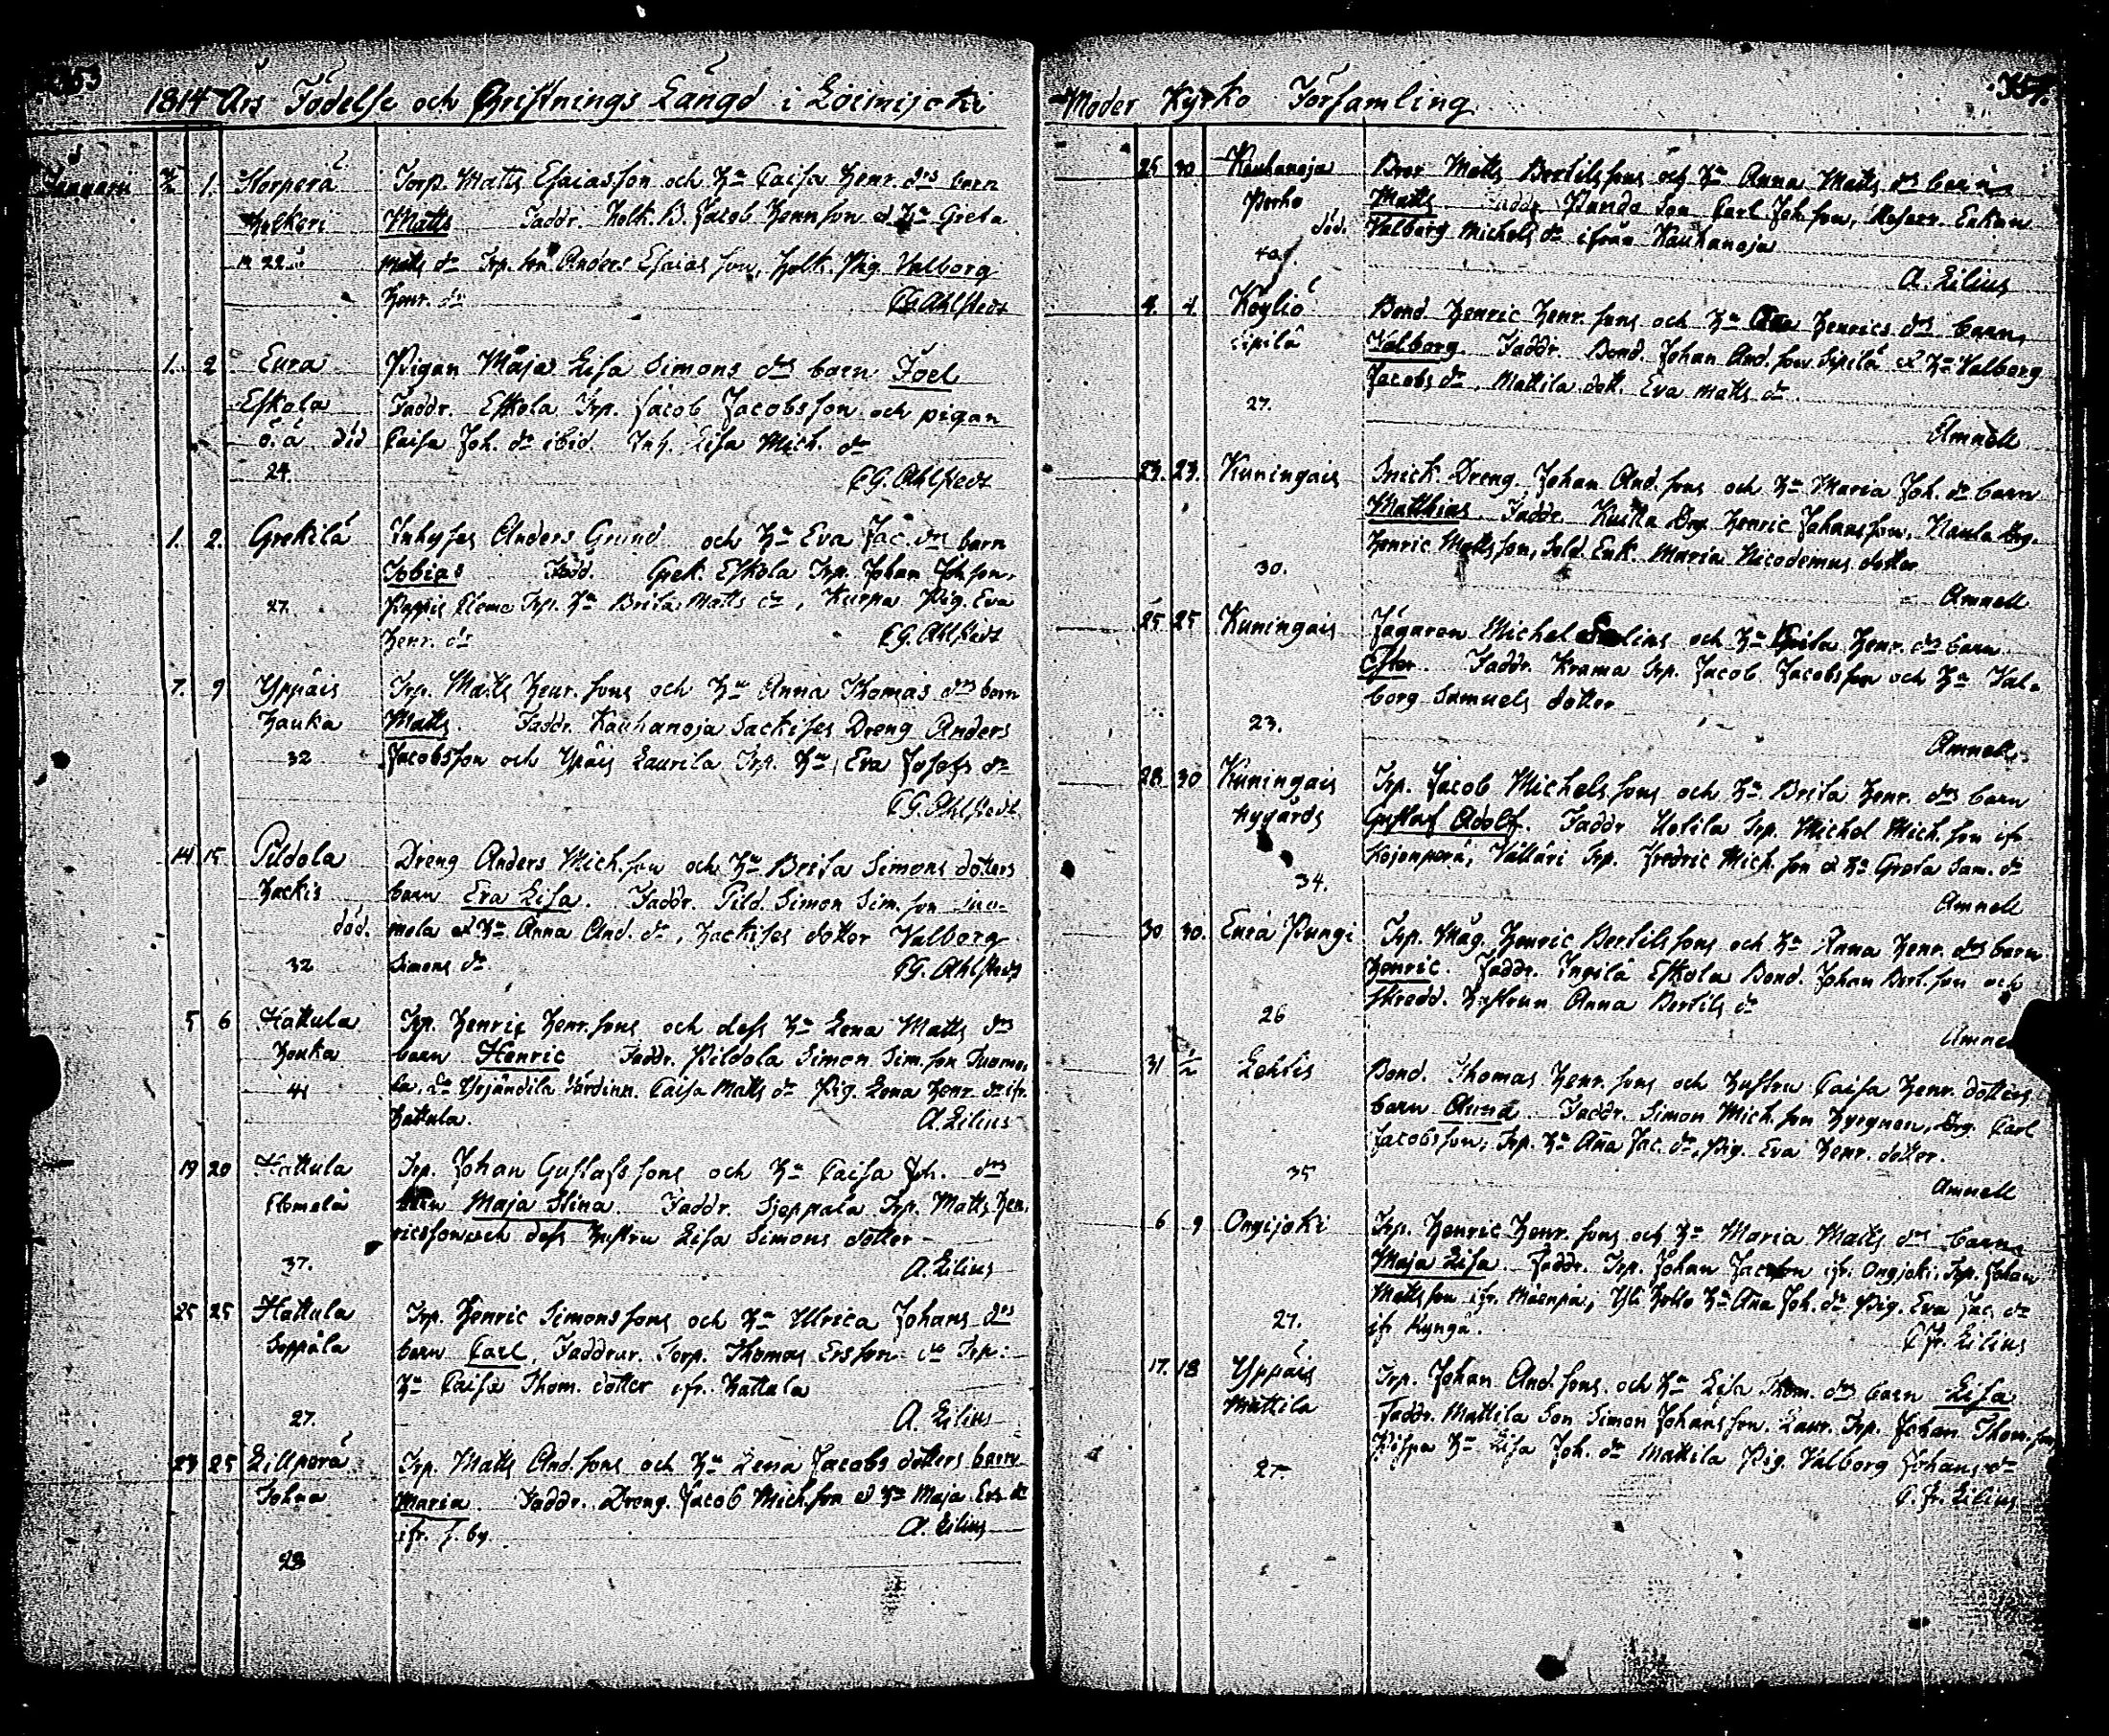 1814 Års Födelse och Christnings Längd i Loimijoki
Januari
1. Korperå Torp. Matts Esaiasson och H:u Caisa Henr. d:rs barn
Holkeri Matts Faddr. Holk. B. Jacob Henrsson et H:u Greta
22 Matts d:r Trp. son Anders Esaiasson, Holk. Pig. Valborg
Henr. d:r CG. Ahlstedt
1. 2. Eura Pigan Maja Lisa Simons d:rs barn Joel
Eskola Faddr. Eskola Trp. Jacob Jacobsson och pigan
o.ä. död Caisa Joh. d:r ibid. Inh. Lisa Mich. d:r
24. CG. Ahlstedt
1. 2. Grekilä Inhyses Anders Grund och H:u Eva Jac. d:rs barn
Tobias Fadd. Grek. Eskola Trp. Johan Joh.son,
27. Trp. H:u Brita Matts d:r, Pig. Eva
Henr. d:r CG. Ahlstedt
7. 9 Yppäis Trp. Matts Henr. sons och H:u Anna Thomas d:rs barn
Hauka Matts. Faddr. Kauhanoja Sackises Dreng Anders
32 Jacobsson och Ypäis Laurila Trp. H:u Eva Josefs d:r
CG. Ahlstedt
14 15 Pildola Dreng Anders Mich.son och H:u Brita Simons dotters
Hackis barn Eva Lisa. Faddr. Pild. Simon Sim.son
död. mola et H:u Anna And. d:r, Hackises dotter Valborg
32 Simons d:r CG. Ahlstedt
5 6 Hattula Trp. Henric Henr.sons och dess H:u Lena Matts d:rs
Houka barn Henric Faddr. Pildola Simon Sim.son Tuomo-
41 la, Yrjändilä Värdinn. Caisa Matts d:r Pig. Lena Henr. d:r ifr.
Hattula. A. Lilius
19 20 Hattula Trp. Johan Gustafssons och H:u Caisa Joh. d:rs
barn Maja Stina. Faddr. Sjeppälä Trp. Matts Hen-
ricsson och dess Hustru Lisa Simons dotter
37. A. Lilius
25 25 Hattula Trp. Henric Simonssons och H:u Ulrica Johans d:rs
Seppälä barn Carl, Faddrar. Torp. Thomas Ersson Trp:
H:u Caisa Thom. dotter ifr. Hattula
27. A. Lilius
23 25 Lillperå Trp. Matts And.sons och H:u Lena Jacobs dotters barn
Maria. Faddr. Dreng. Jacob Mich.son et H:u Maja Ers d:r
ifr. s. by. A. Lilius
28
357.
Moder Kyrko Församling
25 30 Kauhanoja Matts Bertilssons och H:u Anna Matts d:rs barn
Perho Matts. Faddr. son Carl Joh.son, Enkan
död. Valborg Michels d:r ifrån Kauhanoja
40. A. Lilius
4. 4. Köyliö Bond Henric Henr.sons och H:u Henrics d:rs barn
Sipilä Valborg. Faddr. Bond. Johan And.son Sipilä et H:u Valborg
Jacobs d:r. Mattila dott. Eva Matts d:r.
27. Amnell
23. 23. Kuningais Snick. Dreng Johan And.sons och H:u Maria Joh. d:r barn
Matthias. Faddr. Drg Henric Johansson, Drg.
Henric Mattsson, Sold. Enk. Maria Nicodemus dotter
30. Amnell
25 25 Kuningais Jägaren Michel och H:u Brita Henr. d:rs barn
Ester. Faddr. Krama Trp. Jacob Jacobsson och H:u Val-
borg Samuels dotter
23. Amnell
28 30 Kuningais Trp. Jacob Michels sons och H:u Brita Henr. d:rs barn
Nygårds Gustaf Adolf. Faddr Uotila Trp. Michel Mich.son ifr
Kojonperä, Vällari Trp. Fredric Mich.son et H:u Greta Sam. d:r
34. Amnell
30 30. Eura Pungi Trp. Måg. Henric Bertilssons och H:u Anna Henr. d:rs barn
Henric. Faddr. Ingilä Eskola Bond. Johan Bert.son och
Skredd. Hustrun Anna Bertils d:r
26 Amnell
31 1/2 Lehtis Bond. Thomas Henr.sons och Hustru Caisa Henr. dotters
barn Faddr. Simon Mich.son Drg. Carl
Jacobsson, Trp. H:u Aña Jac. d:r, Pig. Eva Henr. dotter.
35 Amnell
6 9 Onjijoki Trp. Henric Henr.sons och H:u Maria Matts d:rs barn
Maja Lisa. Faddr. Trp. Johan Jacsson ifr. Onjoki, Trp. Johan
Mattsson ifr. Mäenpä, H:u Aña Joh. d:r Pig. Eva Jac. d:r
27. ifr Kyngä. C. Fr. Lilius
17. 18 Yppäis Trp. Johan And.sons och H:u Lisa Thom. d:rs barn Lisa
Mattila Faddr. Mattila Son Simon Johansson. Laur. Trp. Johan Thom.son
27. H:u Lisa Joh. d:r Mattila Pig. Valborg Johans d:r
C. Fr. Lilius